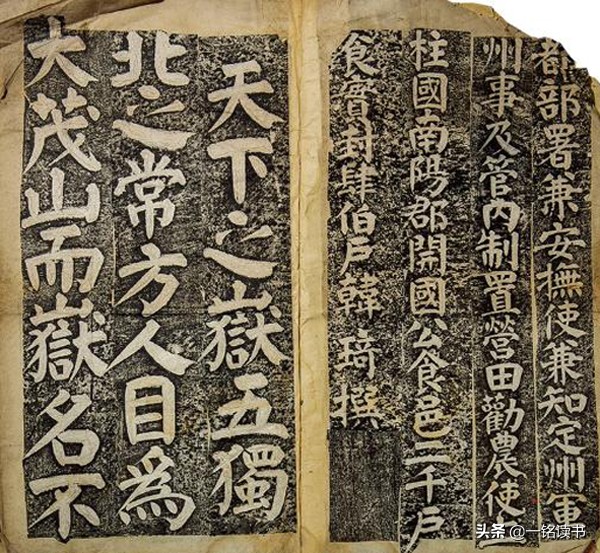 都部署兼安撫使兼知定州軍
州事及管内制置營田勸農使
柱國南陽郡開國公食邑二千戶
食實封肆伯戶韓琦撰
天下之嶽五獨
北之常方人目為
大茂山而嶽名不
头条 @一铭读书